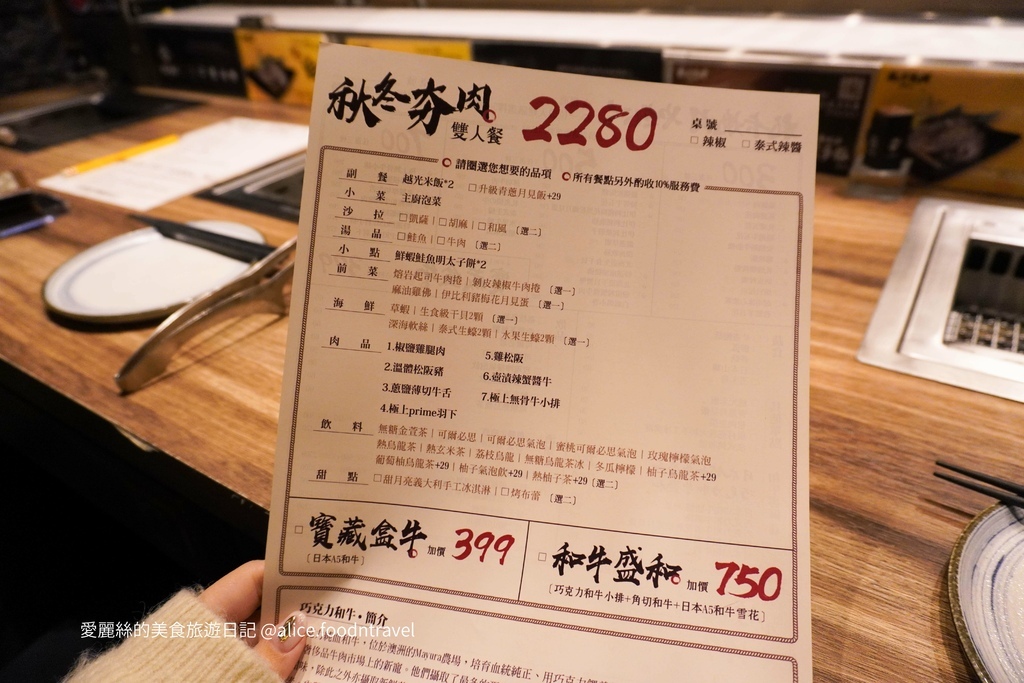 秋冬夯肉 雙人餐 2280
桌號
□ 辣椒 □ 泰式辣醬
請圈選您想要的品項 所有餐點另外酌收10%服務費
副餐 越光米飯*2 □升級青蔥月見飯+29
小菜 主廚泡菜
沙拉 □凱薩 | □胡麻 | □和風 〔選二〕
湯品 □鮭魚 | □牛肉 〔選二〕
小點 鮮蝦鮭魚明太子餅*2
前菜 熔岩起司牛肉捲 | 剝皮辣椒牛肉捲 〔選一〕
麻油雞佛 | 伊比利豬梅花月見蛋 〔選一〕
海鮮 草蝦 | 生食級干貝2顆 〔選一〕
深海軟絲 | 泰式生蠔2顆 | 水果生蠔2顆 〔選一〕
肉品 1.椒鹽雞腿肉 5.雞松阪
2.溫體松阪豬 6.壺漬辣蟹醬牛
3.蔥鹽薄切牛舌 7.極上無骨牛小排
4.極上prime羽下
飲料 無糖金萱茶 | 可爾必思 | 可爾必思氣泡 | 蜜桃可爾必思氣泡 | 玫瑰檸檬氣泡
熱烏龍茶 | 熱玄米茶 | 荔枝烏龍 | 無糖烏龍茶冰 | 冬瓜檸檬 | 柚子烏龍茶+29
葡萄柚烏龍茶+29 | 柚子氣泡飲+29 | 熱柚子茶+29〔選二〕
甜點 □甜月亮義大利手工冰淇淋 | □烤布蕾 〔選二〕
□ 寶藏盒牛 加價 399
〔日本A5和牛〕
□ 和牛盛和 加價 750
〔巧克力和牛小排+角切和牛+日本A5和牛雪花〕
巧克力和牛・簡介
和牛，位於澳洲的Mayura農場，培育血統純正、用巧克力
品牛肉市場上的新寵。他們攝取了最多的
味，除此之外亦攝取新鮮
愛麗絲的美食旅遊日記 @alice.foodntravel